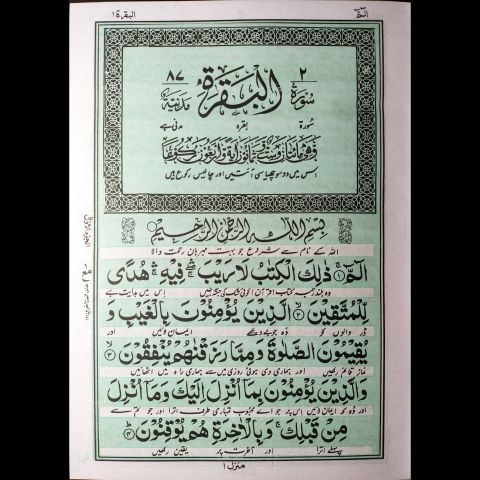 الۤمّۤ ١
البقرة ٢
٢
٨٧
سُورَةُ الْبَقَرَةِ مَدَنِيَّةٌ
سُورۃ بقرہ مدنی ہے
وَهِيَ مِائَتَانِ وَسِتٌّ وَثَمَانُونَ اٰيَةً وَاَرْبَعُونَ رُكُوعًا
اس میں دو سو چھیاسی آیتیں اور چالیس رکوع ہیں
بِسْمِ اللّٰهِ الرَّحْمٰنِ الرَّحِيْمِ
اللہ کے نام سے شروع جو بہت مہربان رحمت والا
الٓمّٓ ۚ‏ ١ ذٰلِكَ الْكِتٰبُ لَا رَيْبَ ۛ فِيْهِ ۛ هُدًى
وہ بلند رتبہ کتاب (قرآن) کوئی شک کی جگہ نہیں اس میں ہدایت ہے
لِّلْمُتَّقِيْنَ ٢ الَّذِيْنَ يُؤْمِنُوْنَ بِالْغَيْبِ وَ
ڈر والوں کو وہ جو بے دیکھے ایمان لائیں اور
يُقِيْمُوْنَ الصَّلٰوةَ وَمِمَّا رَزَقْنٰهُمْ يُنْفِقُوْنَ ٣
نماز قائم رکھیں اور ہماری دی ہوئی روزی میں سے ہماری راہ میں اٹھائیں
وَالَّذِيْنَ يُؤْمِنُوْنَ بِمَآ اُنْزِلَ اِلَيْكَ وَمَآ اُنْزِلَ
اور وہ کہ ایمان لائیں اس پر جو اے محبوب تمہاری طرف اترا اور جو تم سے
مِنْ قَبْلِكَ ۚ وَبِالْاٰخِرَةِ هُمْ يُوْقِنُوْنَ ٤
پہلے اترا اور آخرت پر یقین رکھیں
منزل ١